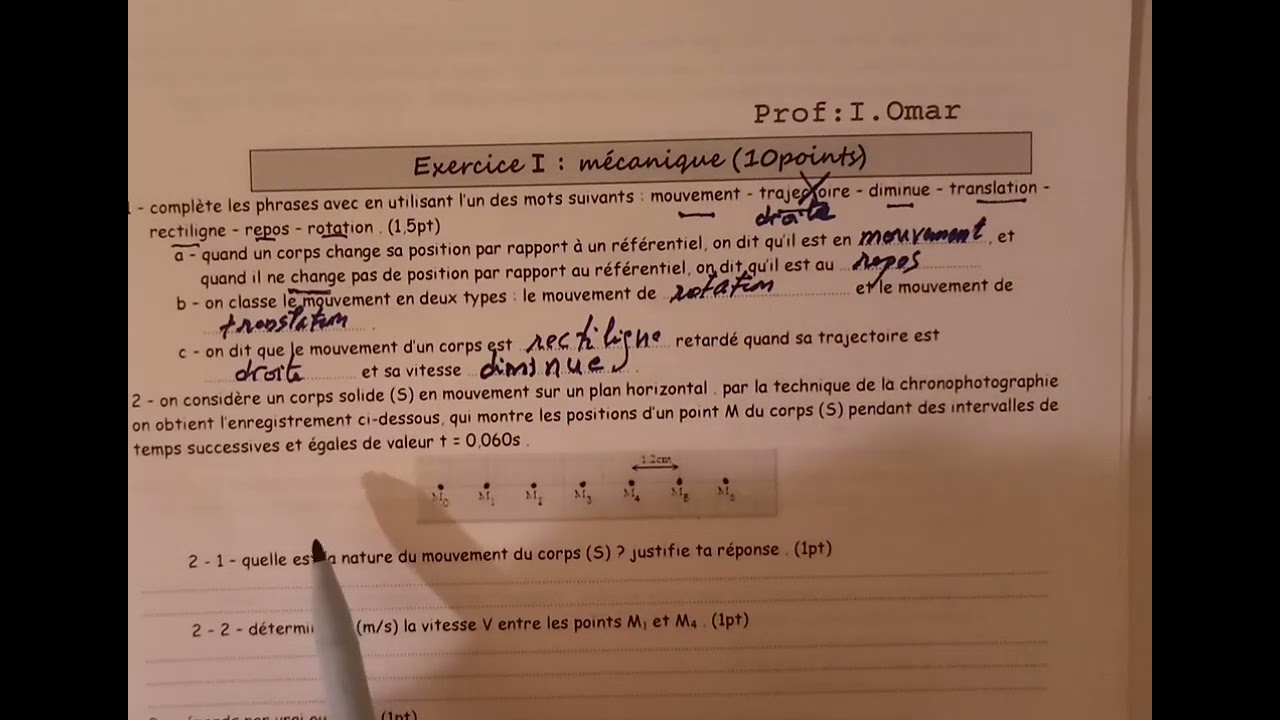 Prof:I.Omar
Exercice I : mécanique (10points)
- complète les phrases avec en utilisant l'un des mots suivants : mouvement - trajectoire - diminue - translation -
droite
rectiligne - repos - rotation . (1,5pt)
a - quand un corps change sa position par rapport à un référentiel, on dit qu'il est en mouvement, et
quand il ne change pas de position par rapport au référentiel, on dit qu'il est au ... repos
b - on classe le mouvement en deux types : le mouvement de rotation et le mouvement de
translation .
c - on dit que le mouvement d'un corps est rectiligne retardé quand sa trajectoire est
droite et sa vitesse ... diminue .
2 - on considère un corps solide (S) en mouvement sur un plan horizontal . par la technique de la chronophotographie
on obtient l'enregistrement ci-dessous, qui montre les positions d'un point M du corps (S) pendant des intervalles de
temps successives et égales de valeur t = 0,060s .
1.2cm
M0 M1 M2 M3 M4 M5
2 - 1 - quelle est la nature du mouvement du corps (S) ? justifie ta réponse . (1pt)
2 - 2 - (m/s) la vitesse V entre les points M1 et M4 . (1pt)
(1pt)